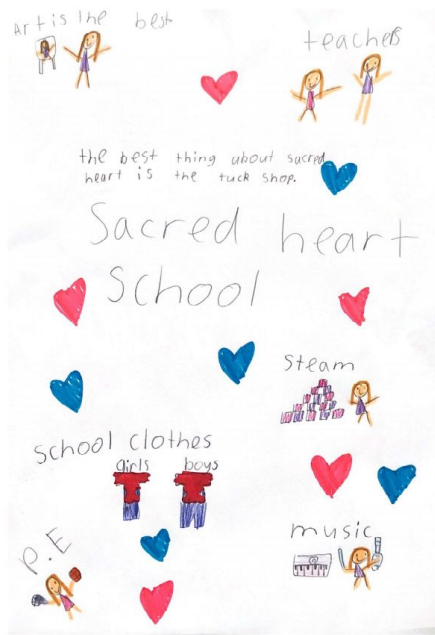 Art is the best
teachers
the best thing about sacred
heart is the tuck shop.
Sacred heart
School
steam
school clothes
girls boys
P.E
music